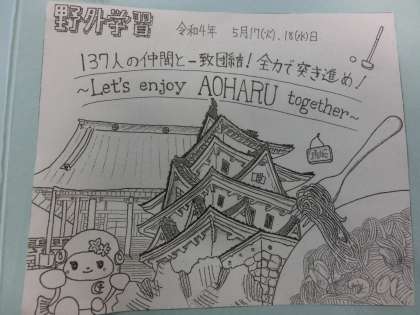 野外学習
令和4年 5月17(火),18(水)日
137人の仲間と一致団結!全力で突き進め!
~Let's enjoy AOHARU together~